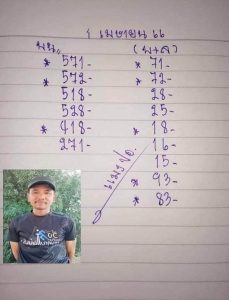 1 เมษายน 66
บน,, (บน+ล)
* 571- * 71-
* 572- * 72-
518- 28-
528- 25-
* 418- * 18-
271- 16-
15-
* 93-
* 83-